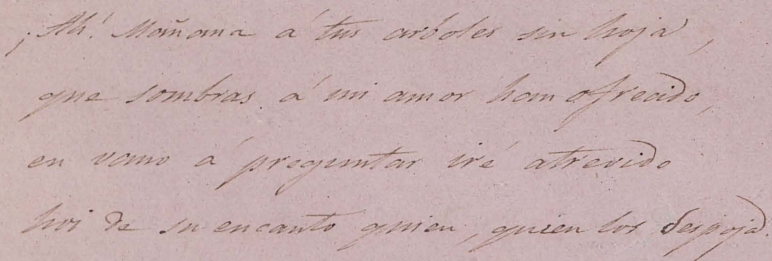 ¡Ah! Mañana á tus arboles sin hoja,
que sombras á mi amor han ofrecido,
en vano á preguntar iré atrevido
hoi de su encanto quien, quien los despoja.